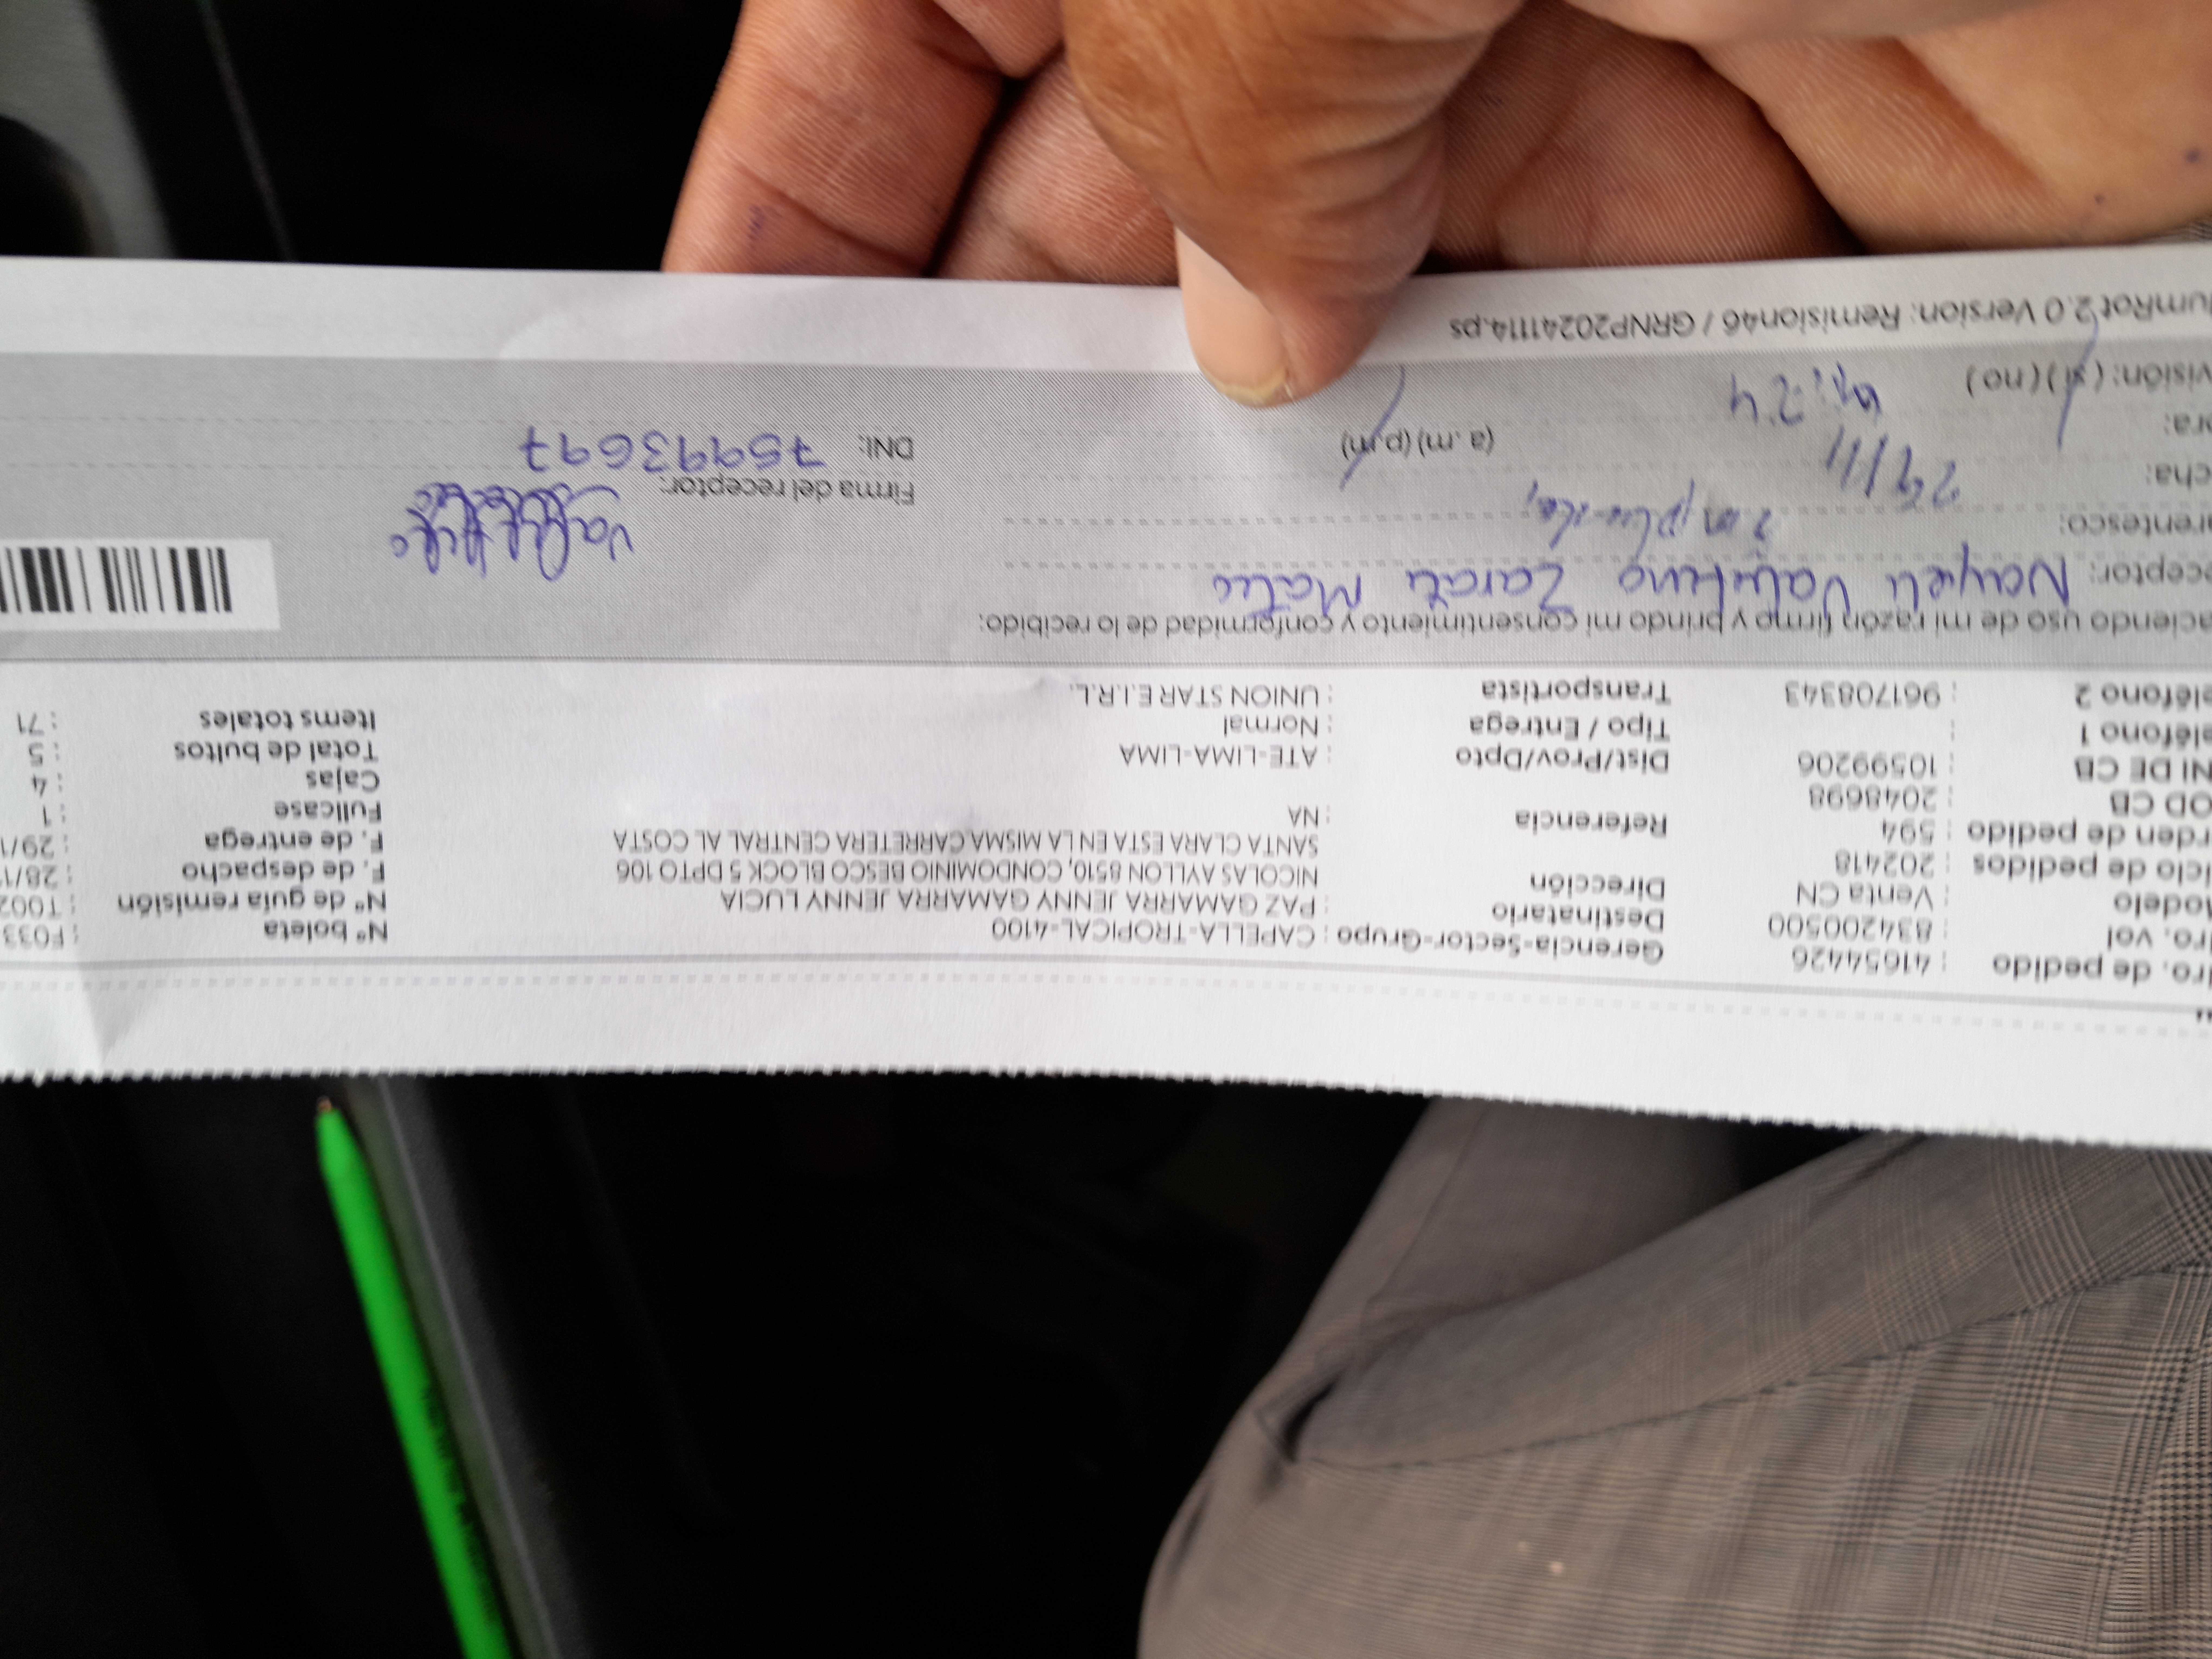 Nro. de pedido : 41654426 Gerencia-Sector-Grupo : CAPELLA-TROPICAL-4100 N° boleta : F033
Nro. vol : 834200500 Destinatario : PAZ GAMARRA JENNY GAMARRA JENNY LUCIA N° de guía remisión : T002
Modelo : Venta CN Dirección NICOLAS AYLLON 8510, CONDOMINIO BESCO BLOCK 5 DPTO 106 F. de despacho : 28/1
iclo de pedidos : 202418 SANTA CLARA ESTA EN LA MISMA CARRETERA CENTRAL AL COSTA F. de entrega : 29/1
rden de pedido : 594 Referencia : NA Fullcase : 1
OD CB : 2048698 Cajas : 4
NI DE CB : 10599206 Dist/Prov/Dpto : ATE-LIMA-LIMA Total de bultos : 5
eléfono 1 : Tipo / Entrega : Normal Items totales : 71
eléfono 2 : 961708343 Transportista : UNION STAR E.I.R.L.
aciendo uso de mi razón firmo y brindo mi consentimiento y conformidad de lo recibido:
eceptor: Nayeli Valentino Zarate Mateo
arentesco:
cha: 29/11 Firma del receptor:
ora: (a.m) (p.m) DNI: 75993697
visión: (si) (no)
umRot 2.0 Version: Remision46 / GRNP20241114.ps